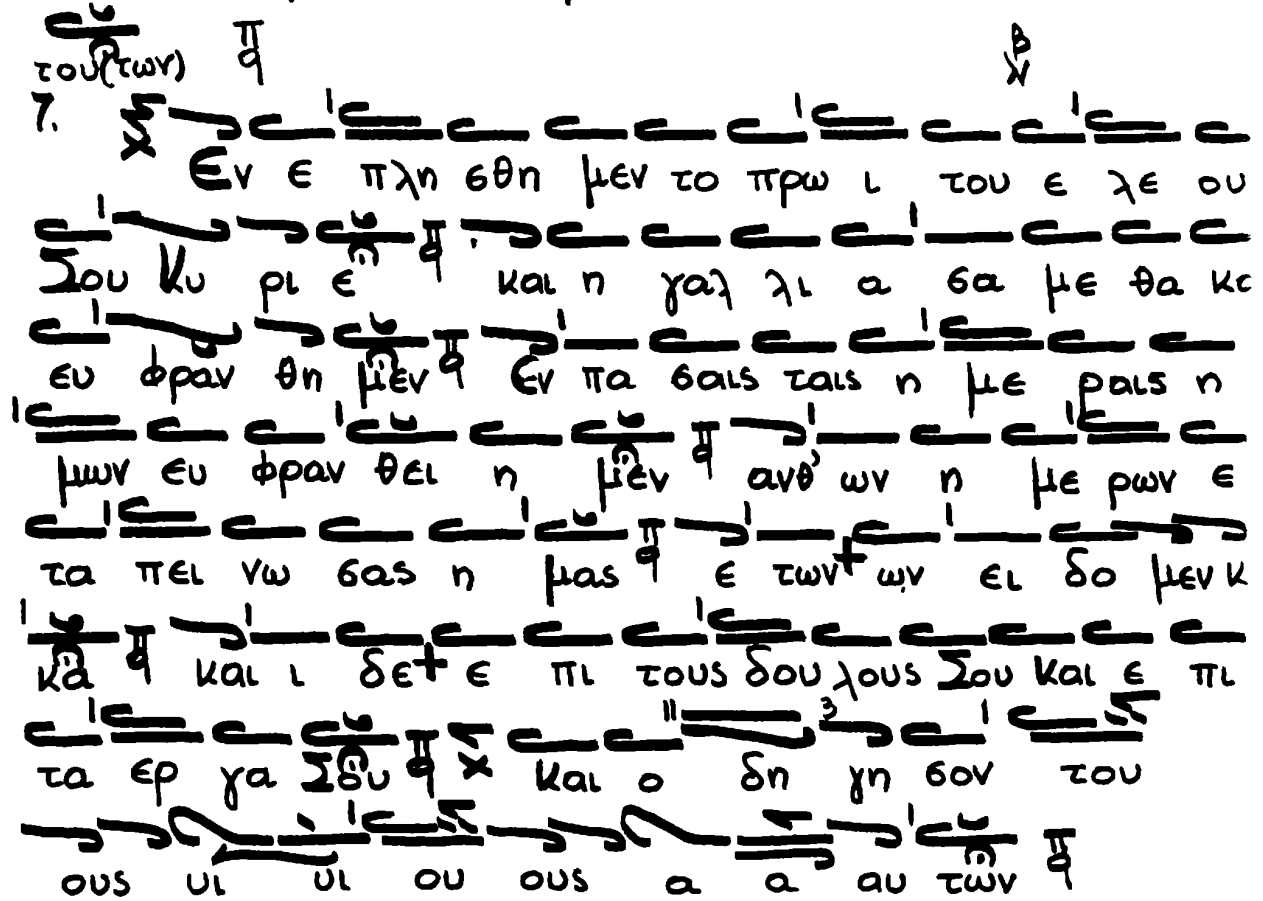 του(των) π̣q
7. Εν ε πλη σθη μεν το πρω ι του ε λε ου
Σου Κυ ρι ε και η γαλ λι α σα με θα κε
ευ φραν θη μεν Εν πα σαις ταις η με ραις η
μων ευ φραν θει η μεν ανθ' ων η με ρων ε
τα πει νω σας η μας ε των ων ει δο μεν κ
κα και ι δε ε πι τους δου λους Σου και ε πι
τα ερ γα Σου και ο δη γη σον του
ους υι υι ου ους α α αυ των